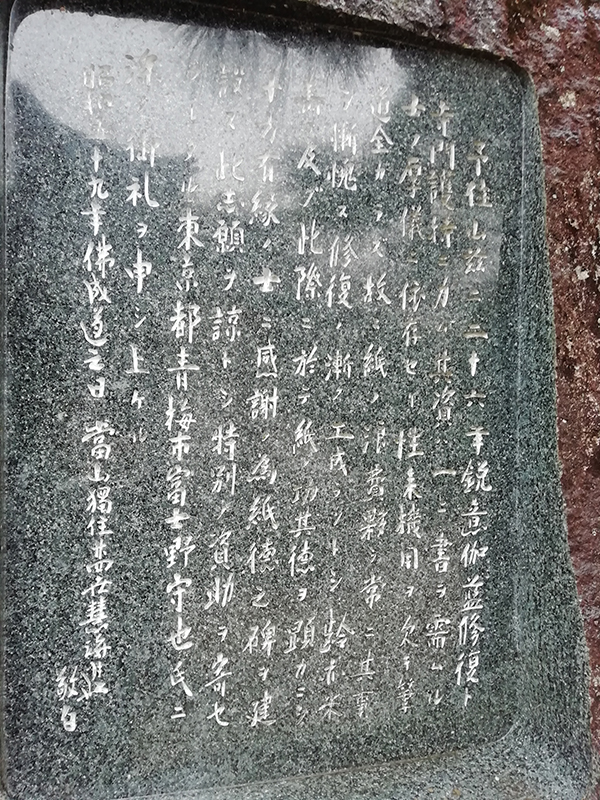 予住山茲ニ二十六年鋭意伽藍修復ト
寺門護持ニ力 其資ハ一ニ書ヲ需ムル
士ノ厚儀ニ依存セリ性来機用ヲ欠キ筆
道全カラズ故ニ紙ノ消費夥シ常ニ其事
ヲ慚愧ス修復ノ漸ク工成ラントシ齢亦米
寿ニ及ブ此際ニ於テ紙ノ功其徳ヲ顕カニシ
十方有縁ノ士ニ感謝ノ為紙徳之碑ヲ建
設ス此志願ヲ諒トシ特別ノ資助ヲ寄セ
ラレタル東京都青梅市富士野守也氏ニ
深ク御礼ヲ申シ上ケル
昭和五十九年佛成道之日 當山獨住
敬白